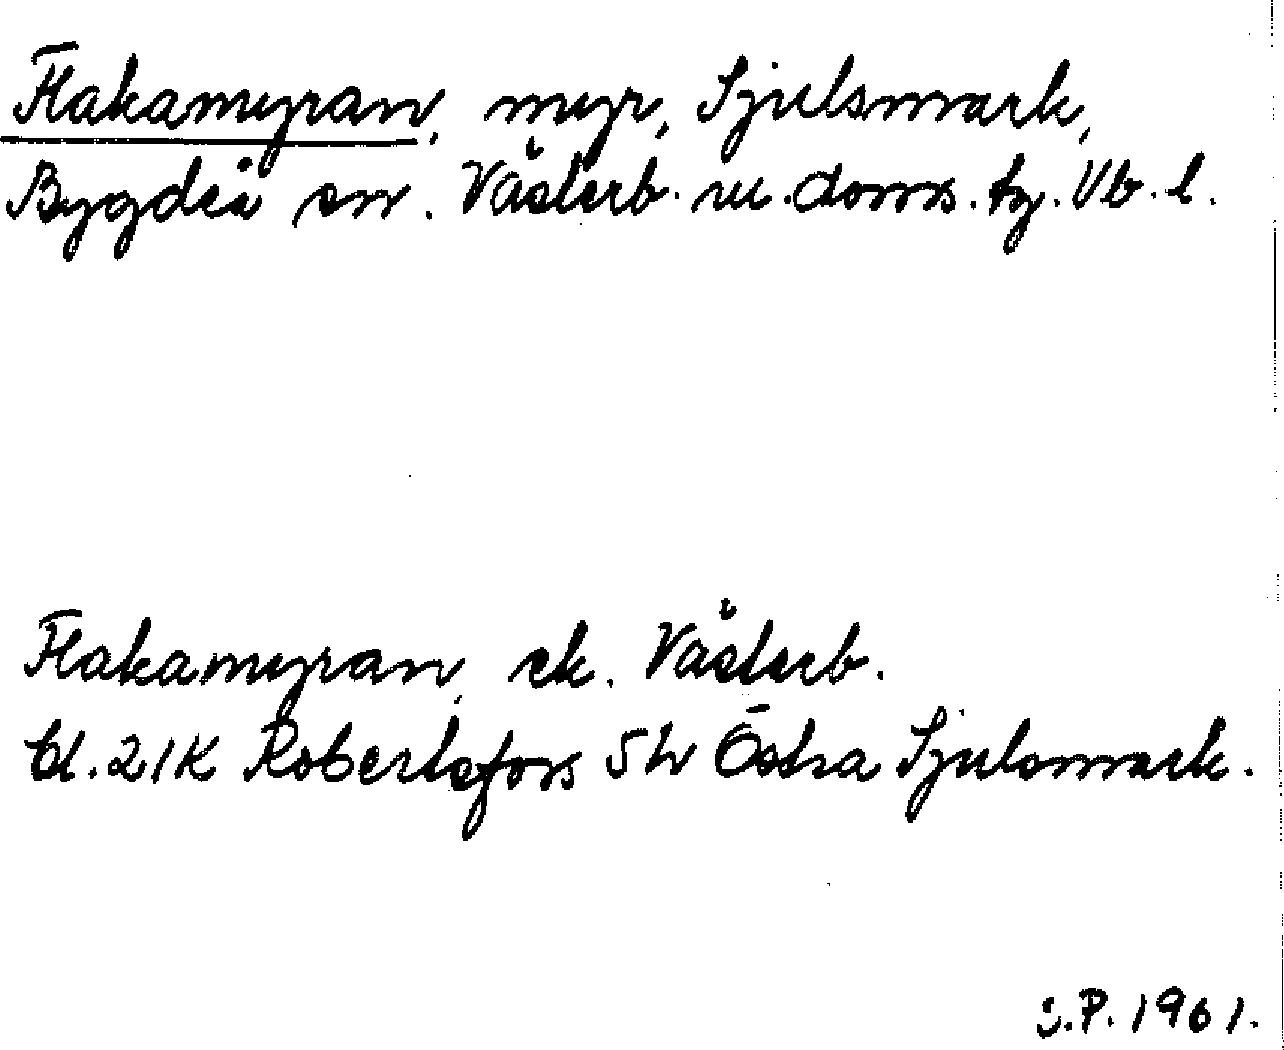 Flakamyran, myr, Sjulsmark,
Bygdeå sn. Västerb. v. doms. tg. Vb. l.
Flakamyran, ek. Västerb.
bl. 21K Robertsfors 5h Östra Sjulsmark.
J.P. 1961.